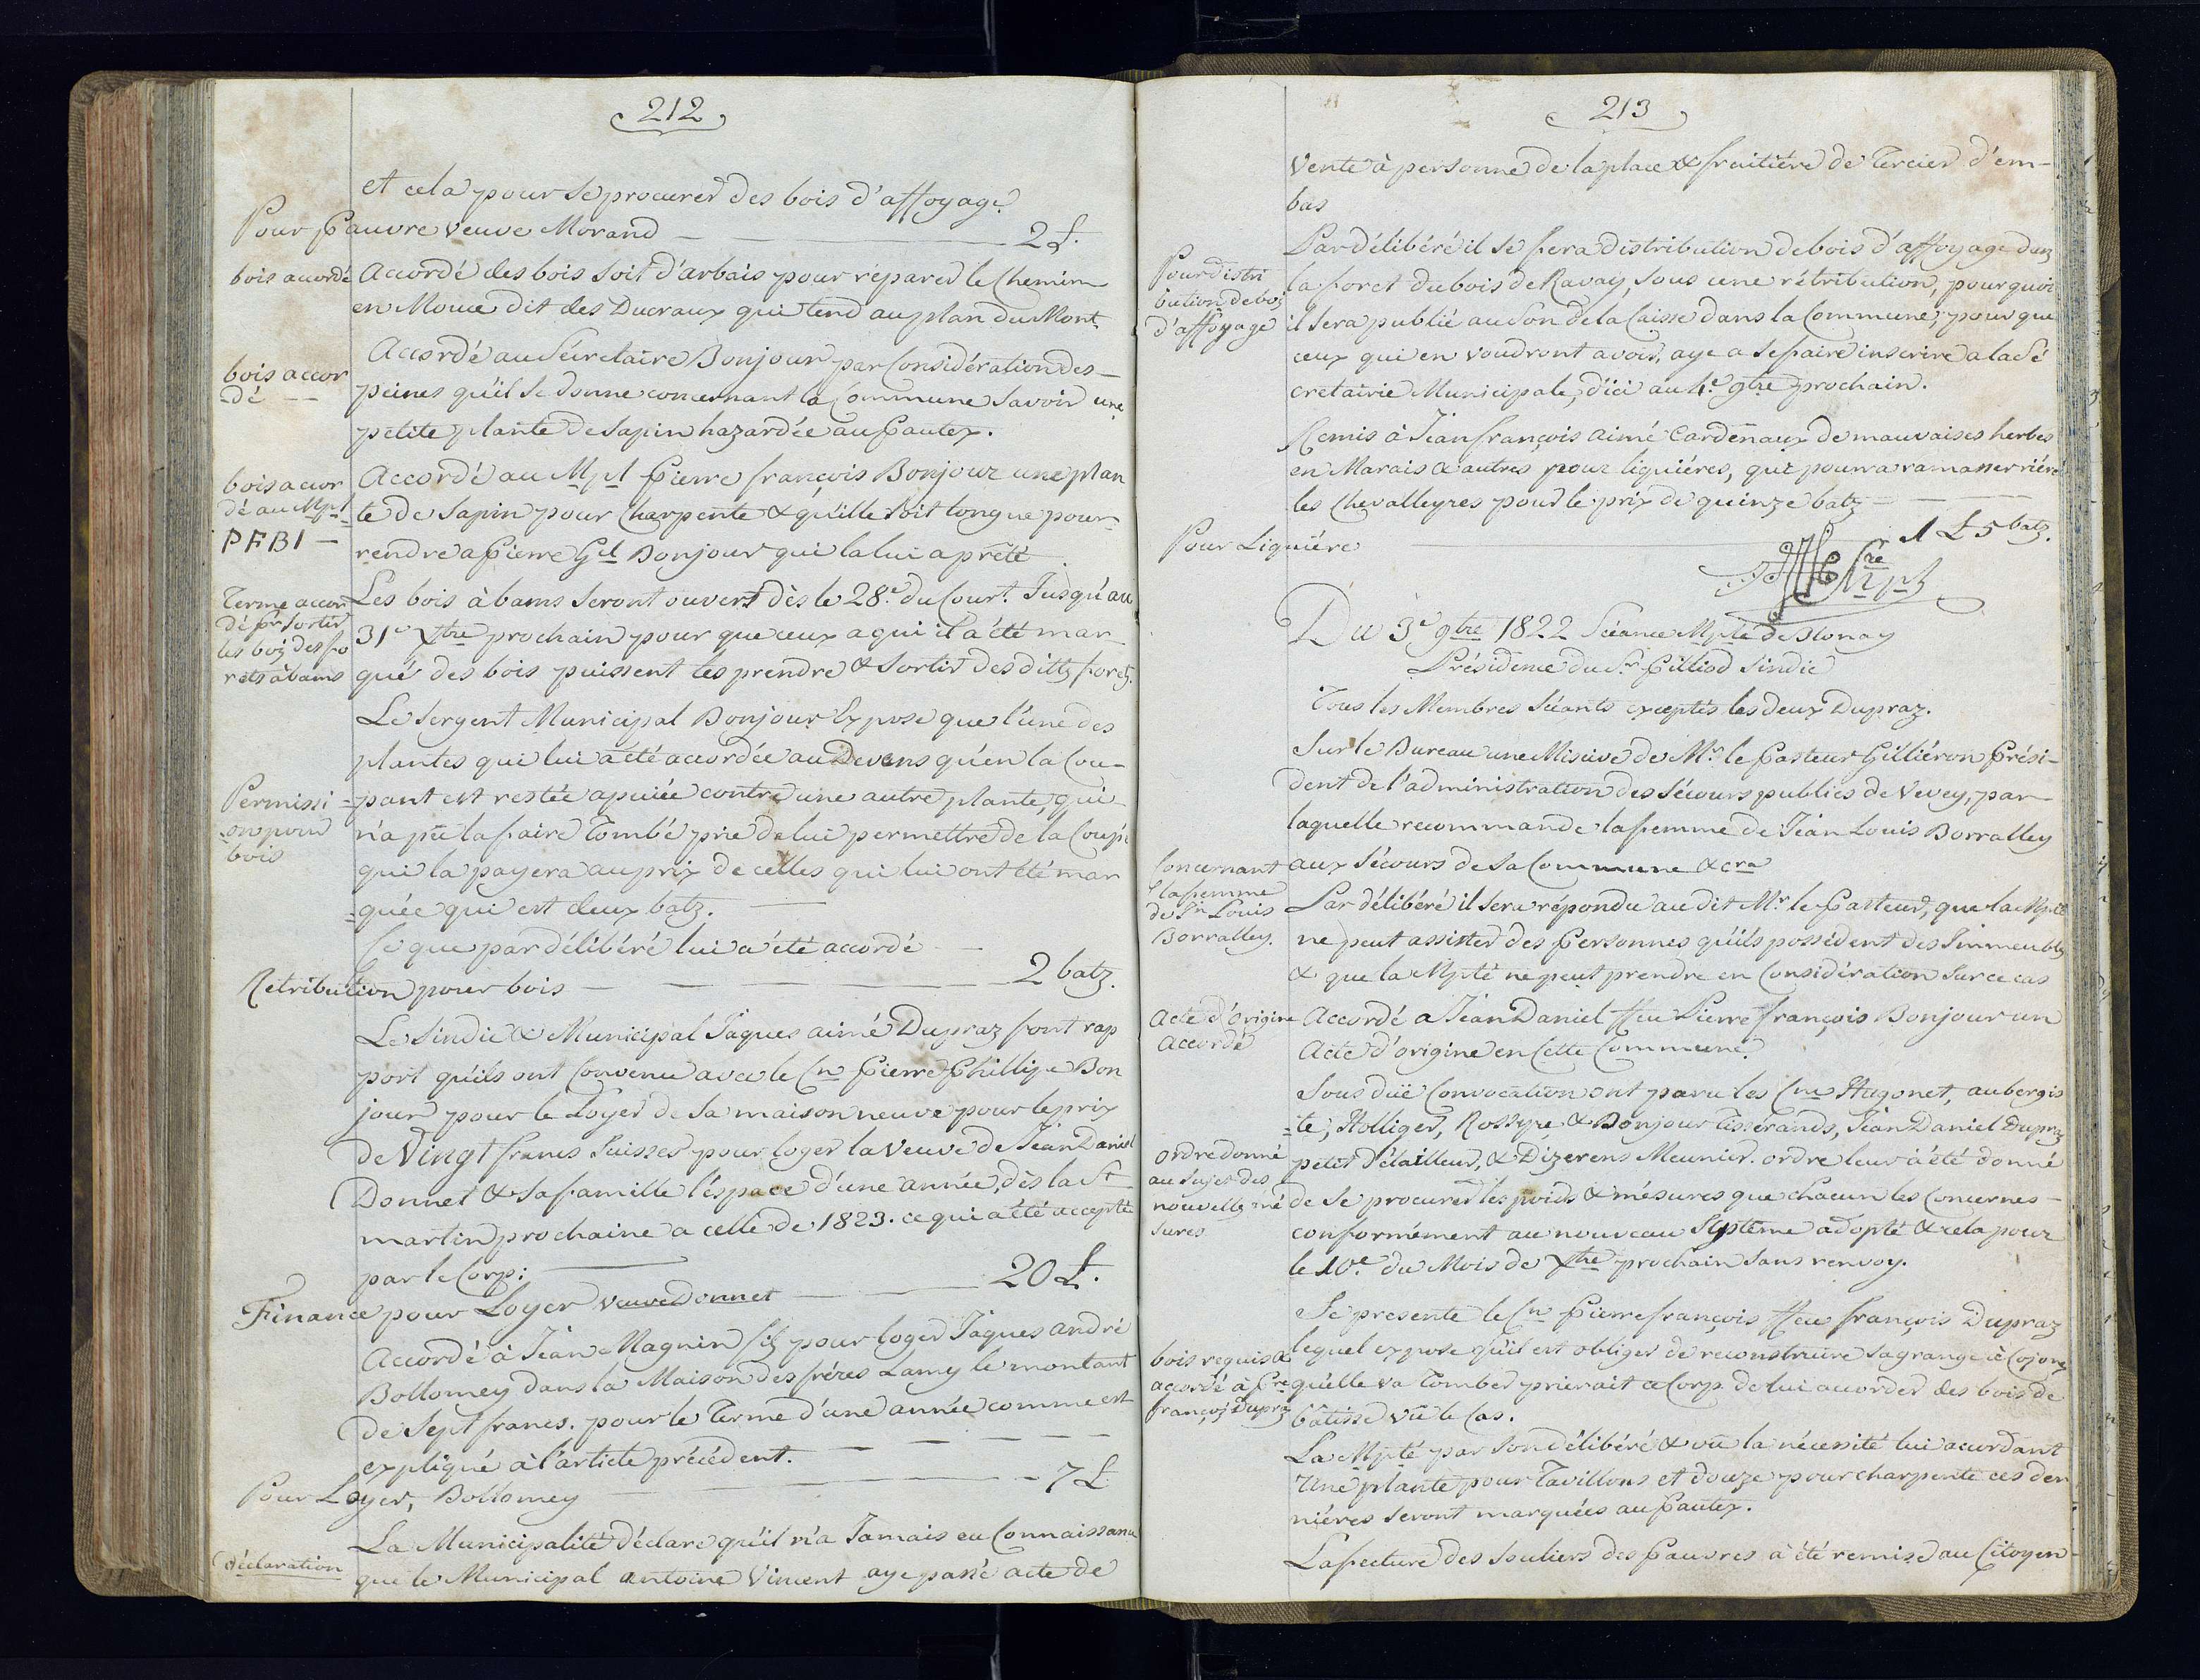 212
et cela pour se procurer des bois d'affoyage
Pour Pauvre Veuve Morand — 2 £.
bois acordé
Accordé des bois soit d'arbais pour réparer le Chemin
en Moue dit des Ducraux qui tend au plan du Mont.
bois accor
dé
Accordé au Sécretaire Bonjour par Considération des
peines qu'il se donne concernant la Commune Savoir une
petite plante de sapin hazardée au Pautex.
bois accor
dé au Mpl
PFBJ —
Accordé au Mpl Pierre françois Bonjour une plan
te de Sapin pour Charpente & qu'elle soit longue pour
rendre a Pierre Gel Bonjour qui la lui a prêté
Terme accor
dé pr Sortir
les boiz des fo
rets à bams
Les bois à bams seront ouvert dès le 28e. du Court. Jusqu'au
31e Xbre prochain pour que ceux a qui il a été mar
qué des bois puissent les prendre & Sortir des ditz foretz.
Le Sergent Municipal Bonjour Expose que l'une des
plantes qui lui a été acordée au Devens qu'en la Cou-
Permissi
on pour
bois
=pant est restée apuiée contre une autre plante, qui
n'a pu la faire Tombé prie de lui permettre de la Coupé
qui la payera au prix de celles qui lui ont été mar
=quée qui est deux batz.
Ce que par délibéré lui a été accordé
Retribution pour bois — 2 batz.
Le Sindic & Municipal Jaques aimé Dupraz font rap
port qu'ils ont Convenu avec le Cn Pierre Phillipe Bon
jour pour le Loyer de Sa maison neuve pour le prix
de Vingt francs Suisses pour loger la Veuve de Jean Daniel
Donnet & Sa famille l'éspace d'une année, dès la St
martin prochaine a celle de 1823. ce qui a été accepté
par le Corp:
Finance pour Loyer Veuve Donnet — 20 £.
Accordé à Jean Magnin filz pour loger Jaques andré
Bollomey dans la Maison des fréres Lamy le montant
de Sept francs. pour le Terme d'une année comme est
expliqué à l'article précédent.
Pour Loyer, Bollomey — 7 £
déclaration
La Municipalité déclare qu'il n'a Jamais eu Connaissance
que le Municipal Antoine Vincent aye passé acte de
213
Vente à personne de la place & fruitiére de Tercier d'em-
bas
Pour distri
bution de boiz
d'affoyage
Par délibéré il se fera distribution de bois d'affoyage danz
la foret du bois de Ravay, sous une rétribution, pour quoi
il sera publié au Son de la Caisse dans la Commune, pour que
ceux qui en voudront avoir, aye a se faire inscrire a la Sé
cretairie Municipale, d'ici au 4e. 9bre prochain.
Remis à Jean françois aimé Cardenaux de mauvaises herbes
en Marais & autres pour liquiéres, qui pourra ramasser riére
les Chevalleyres pour le prix de quinze batz
Pour Liquiére — 1 £ 5 batz.
Du 3e 9bre 1822 Séance Mplté de Blonay
Présidence du Sr. Pilliod Sindic
Tous les Membres Séants exceptés les deux Dupraz.
Sur le Bureau une Missive de Mr. le Pasteur Gilliéron Prési-
dent de l'administration des Sécours publics de Vevey, par
laquelle recommande la femme de Jean Louis Borralley
aux Sécours de Sa Commune & cra
Concernant
la femme
de Jn Louis
Borralley.
Par délibéré il sera répondu au dit Mr le Pasteur, que la Mplté
ne peut assister des Personnes qu'ils possédent des Immeublz
& que la Mplté ne peut prendre en Considération Sur ce cas
Acte d'origine
Accordé
Accordé a Jean Daniel ffeu Pierre françois Bonjour un
Acte d'origine en Cette Commune.
Sous düe Convocation ont paru les Cns Hugonet, aubergis
=te, Holliger, Rossyre, & Bonjour Tisserands, Jean Daniel Dupraz
ordre donné
au Sujet des
nouvellz mé
sures
petit Détailleur, & Dizerens Meunier. ordre leur a été donné
de Se procurer les poids & mésures que chacun les Concernes
conformément au nouveau Systême adopté & cela pour
le 10e. du Mois de Xbre prochain Sans renvoy.
Se presente le Cn Pierre françois ffeu françois Dupraz
bois requis &
acordé à Pre
françoiz Dupraz
lequel expose qu'il est obliger de reconstruire Sa grange à Cojonz
qu'elle va Tomber prierait ce Corp. de lui accorder des bois de
bâtisse vu le Cas.
La Mpté par Son délibéré & vu la nécessité lui acordant
Une plante pour Tavillons et douze pour charpente ces der
niéres Seront marquées au Pautex.
La fecture des Souliers des Pauvres à été remise au Citoyen